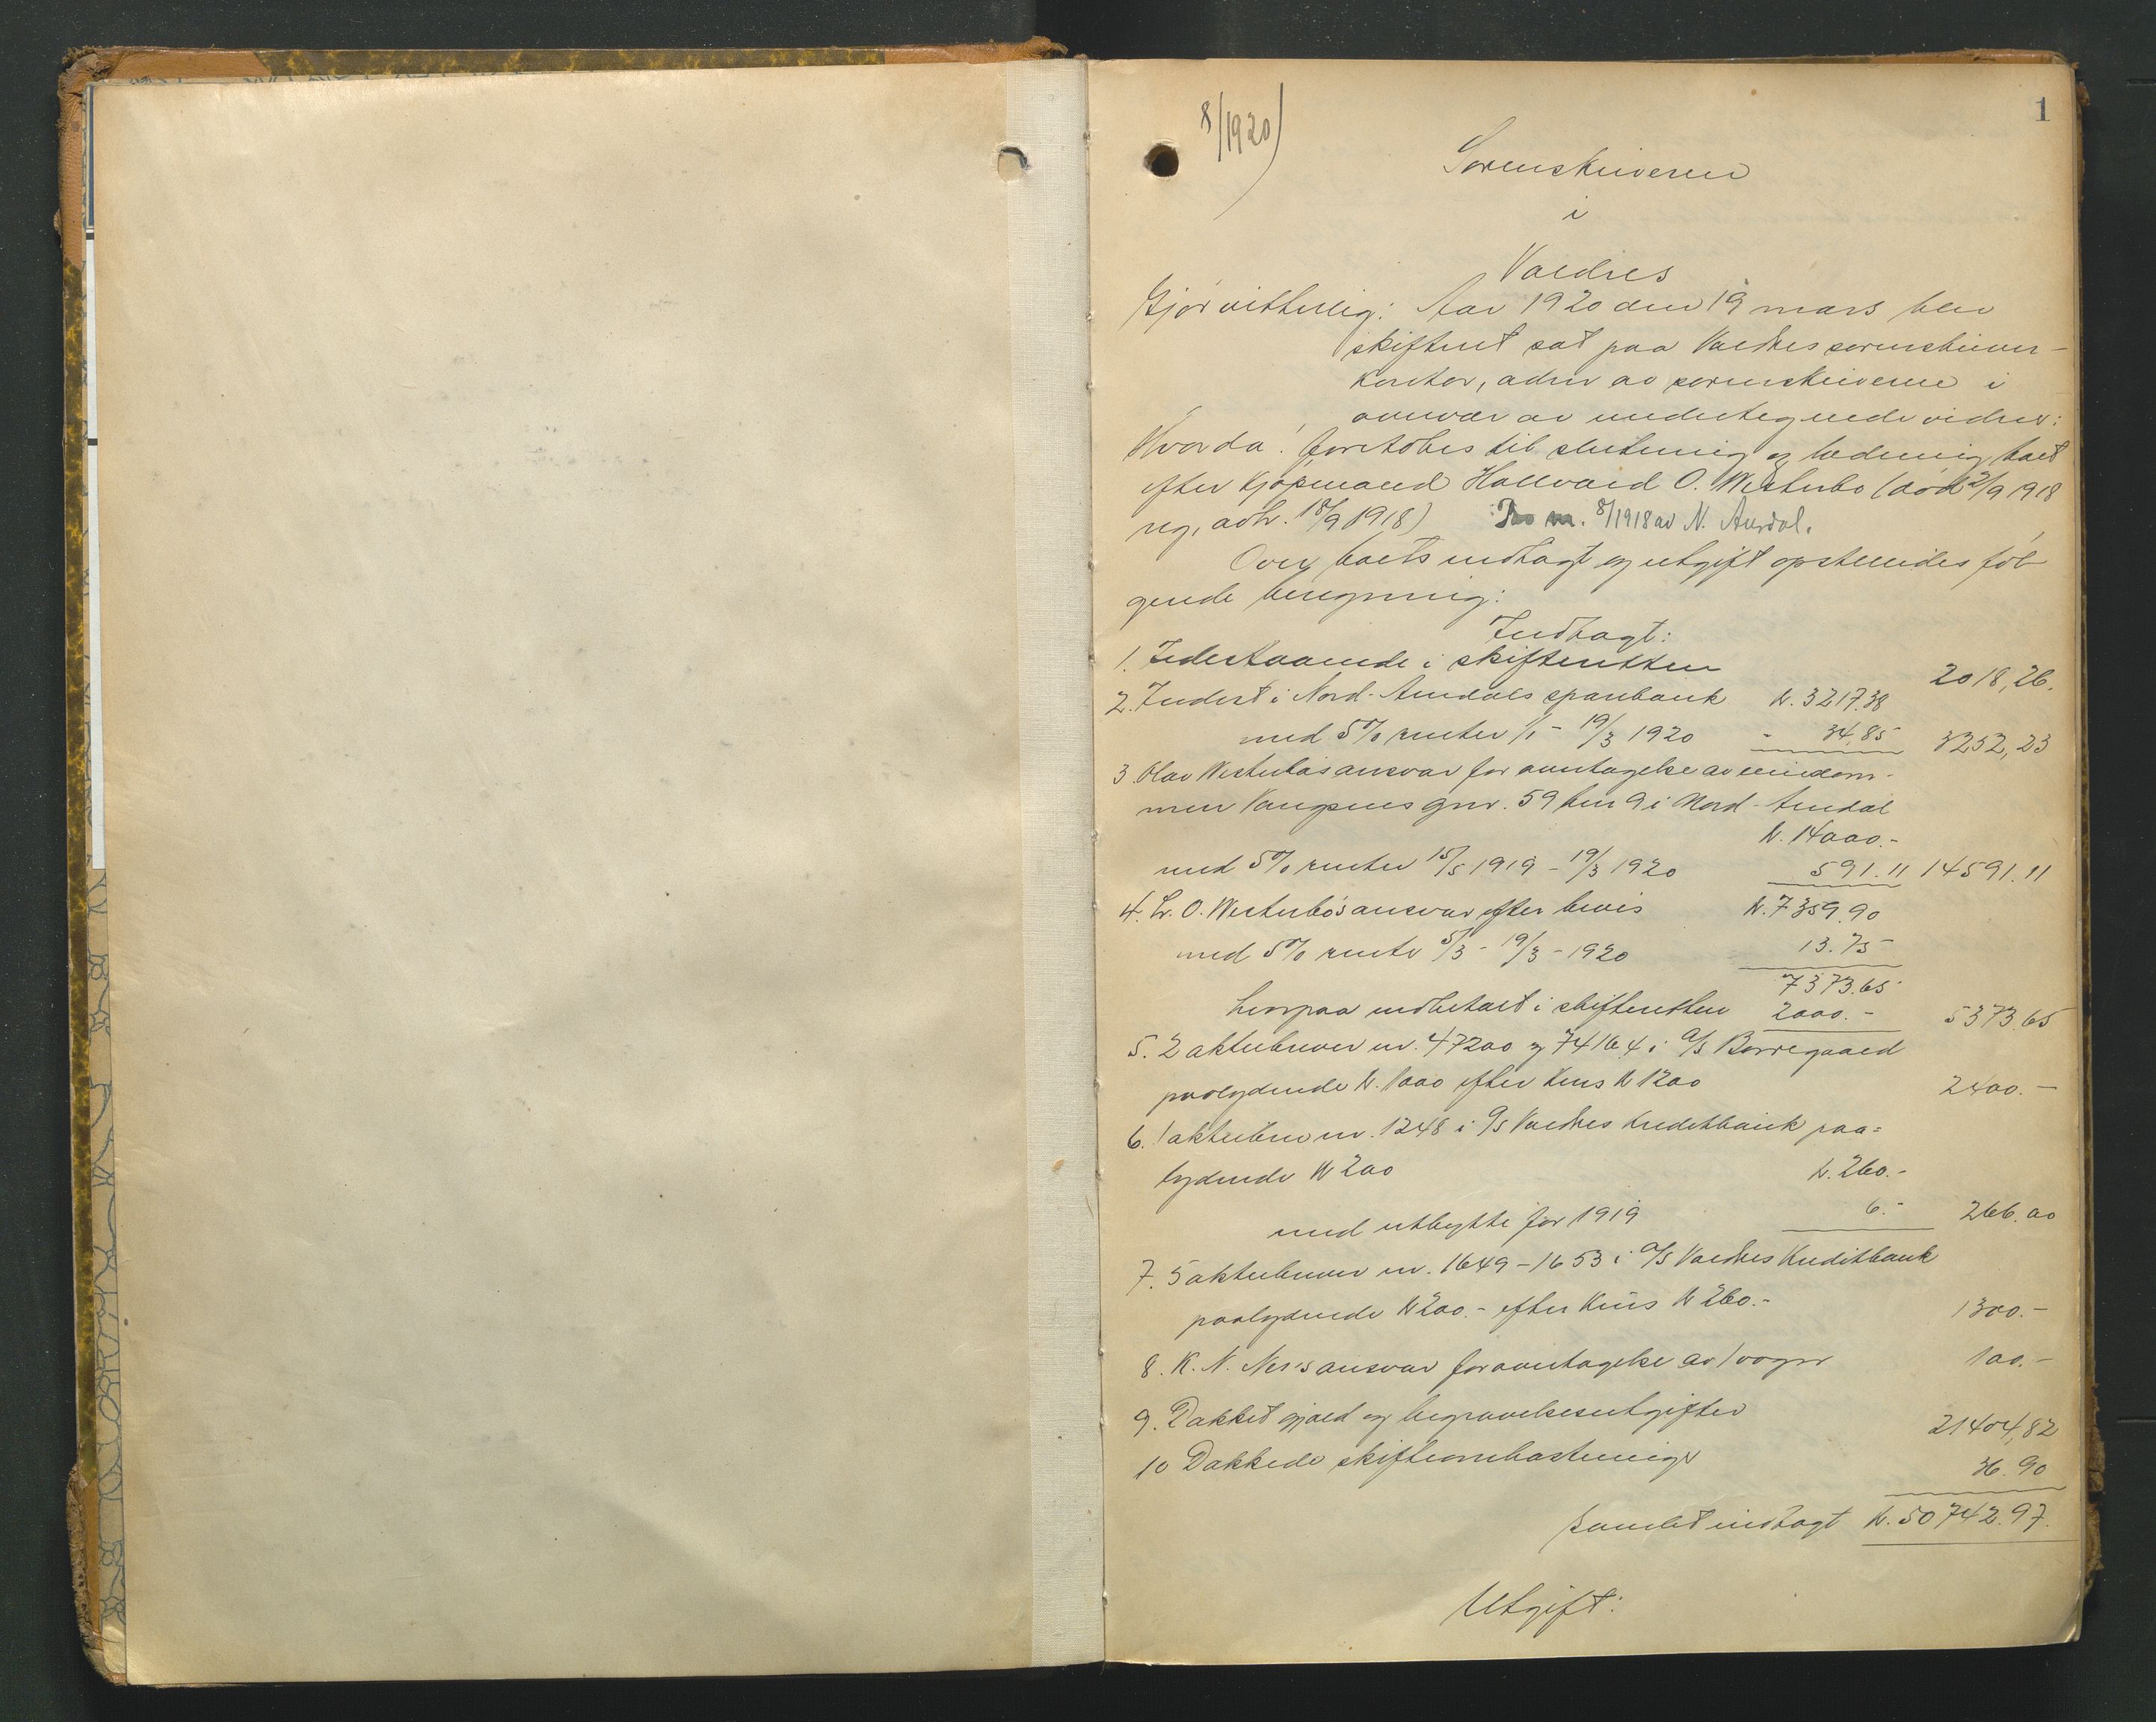 1
8/1920)
Sorenskriveren
i
Valdres
Gjør vitterlig: Aar 1920 den 19 mars blev
skifteret sat paa Valdres sorenskriver-
kontor, adm av sorenskriveren i
overvær av undertegnede vidner:
Hvorda: foretokes til slutning og lodning boet
efter kjøpmand Hallvard O. Westerbo (død 2/9 1918
reg, avh. 18/9 1918) 8/1918 av N. Aurdal.
Over boets indtægt og utgift opstilledes føl-
gende beregning:
Indtægt:
1. Indestaaende i skifteretten 2018,26.
2. Indest i Nord-Aurdals sparebank kr. 3217.38
med 5% renter 1/1 - 19/3 1920 - 34.85 3252,23
3 Olav Westerbøs ansvar for overtagelse av eiendom-
men Vangsnes gnr. 59 bnr 9 i Nord-Aurdal
kr. 14000.-
med 5% renter 15/5 1919 - 19/3 1920 591.11 14591.11
4. Hr. O. Westerbøs ansvar efter bevis kr. 7359.90
med 5% rente 5/3 - 19/3 - 1920 13.75
7373.65
herpaa indbetalt i skifteretten 2000.- 5373.65
5. 2 aktiebrever nr. 47200 og 74164 i A/S Borregaard
paalydende kr. 1000 efter kurs kr 1200 2400.-
6. 1 aktiebrev nr. 1248 i A/S Valdres Kreditbank paa=
lydende kr 200 kr. 260.-
med utbytte for 1919 6.- 266.00
7. 5 aktiebrever nr. 1649-1653 i A/S Valdres Kreditbank
paalydende kr 200.- efter kurs kr 260.- 1300.-
8. K. N. Nes's ansvar for overtagelse av 1 vogn 100.-
9. Dækket gjæld og begravelsesutgifter 21404,82
10 Dækkede skifteomkostninger 36.90
Samlet indtægt kr. 50742.97.
Utgift: